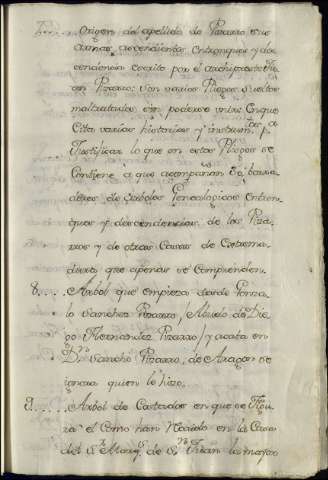 7.... Origen del apellido de Pizarro sus
Armas, ascendientes Entronques y des
cendencia escrito por el archipreste Ju
an Pizarro: son varios Pliegos sueltos
maltratados sin poderse unir: En que
Cita varias historias y instrum.tos p.a
Justificar lo que en estos Pliegos se
Contiene, a que acompañan
de Arboles Genealogicos Entron
ques y descendencias de los Piza
rros y de otras Casas de Estrema
dura que apenas se Comprenden.
8.... Arbol que empieza desde Gonza
lo Sanchez Pizarro, Abuelo de Die
go Hernandez Pizarro, y acaba en
D.n Sancho Pizarro, de Aragon se
ignora quien lo hizo.
9.... Arbol de Costados en que se Figu
ra el Como han Recaido en la Casa
del S.r Marq.s de S.n Juan la mayor